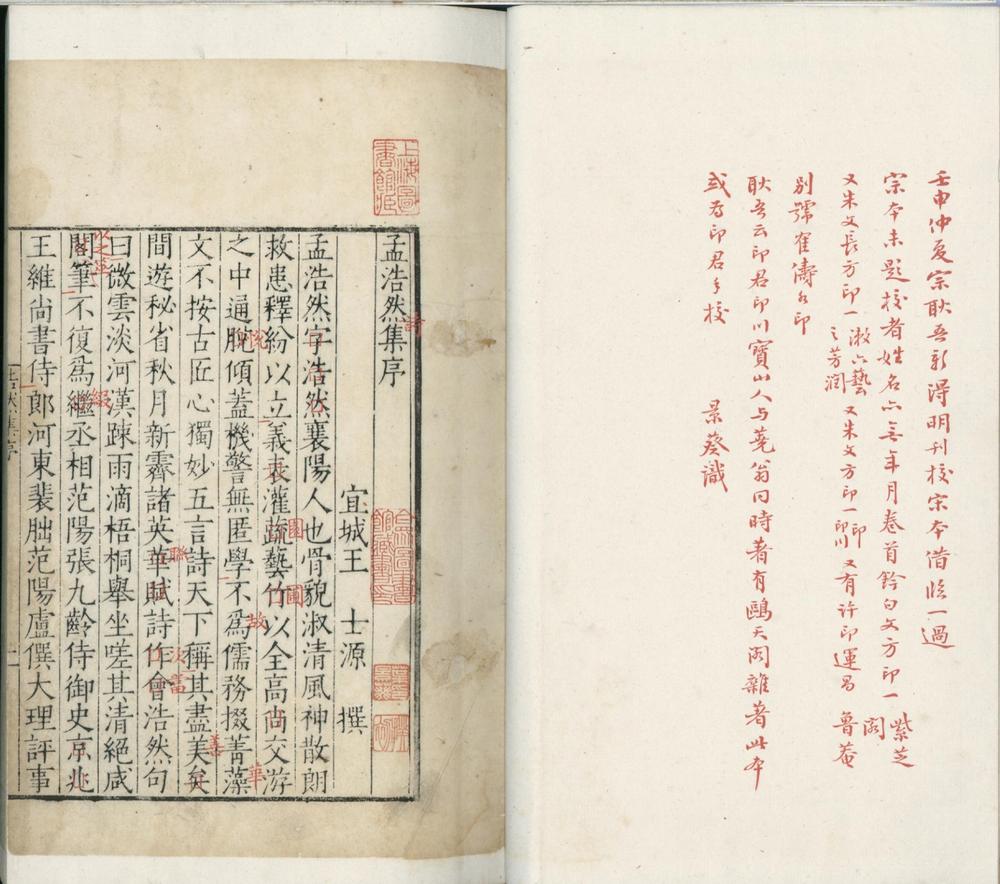 壬申仲夏宗耿吾新得明刊校宋本借臨一過
宗本未題校者姓名亦無年月卷首鈐白文方印一紫芝閣
又朱文長方印一漱六藝之芳潤又朱文方印一印印川又有許印運昌魯菴
別號雀濤各印
耿吾云印君印川寶山人与蕘翁同時著有鷗天閣雜著此本
或为印君手校
景葵識
上海圖書館藏
孟浩然詩集序
宜城王士源撰
孟浩然字浩然襄陽人也骨貌淑清風神散朗
救患釋紛以立義表灌蔬藝竹以全高尚交游
之中通脫傾蓋機警無匿學不爲儒務掇菁藻
文不按古匠心獨妙五言詩天下稱其盡美矣
間遊秘省秋月新霽諸英華賦詩作會浩然句
曰微雲淡河漢疎雨滴梧桐舉坐嗟其清絕咸
閣筆不復爲繼丞相范陽張九齡侍御史京兆
王維尚書侍郎河東裴朏范陽盧僎大理評事
悅
園
圃
故
華
聯
次當
善
以之
綴